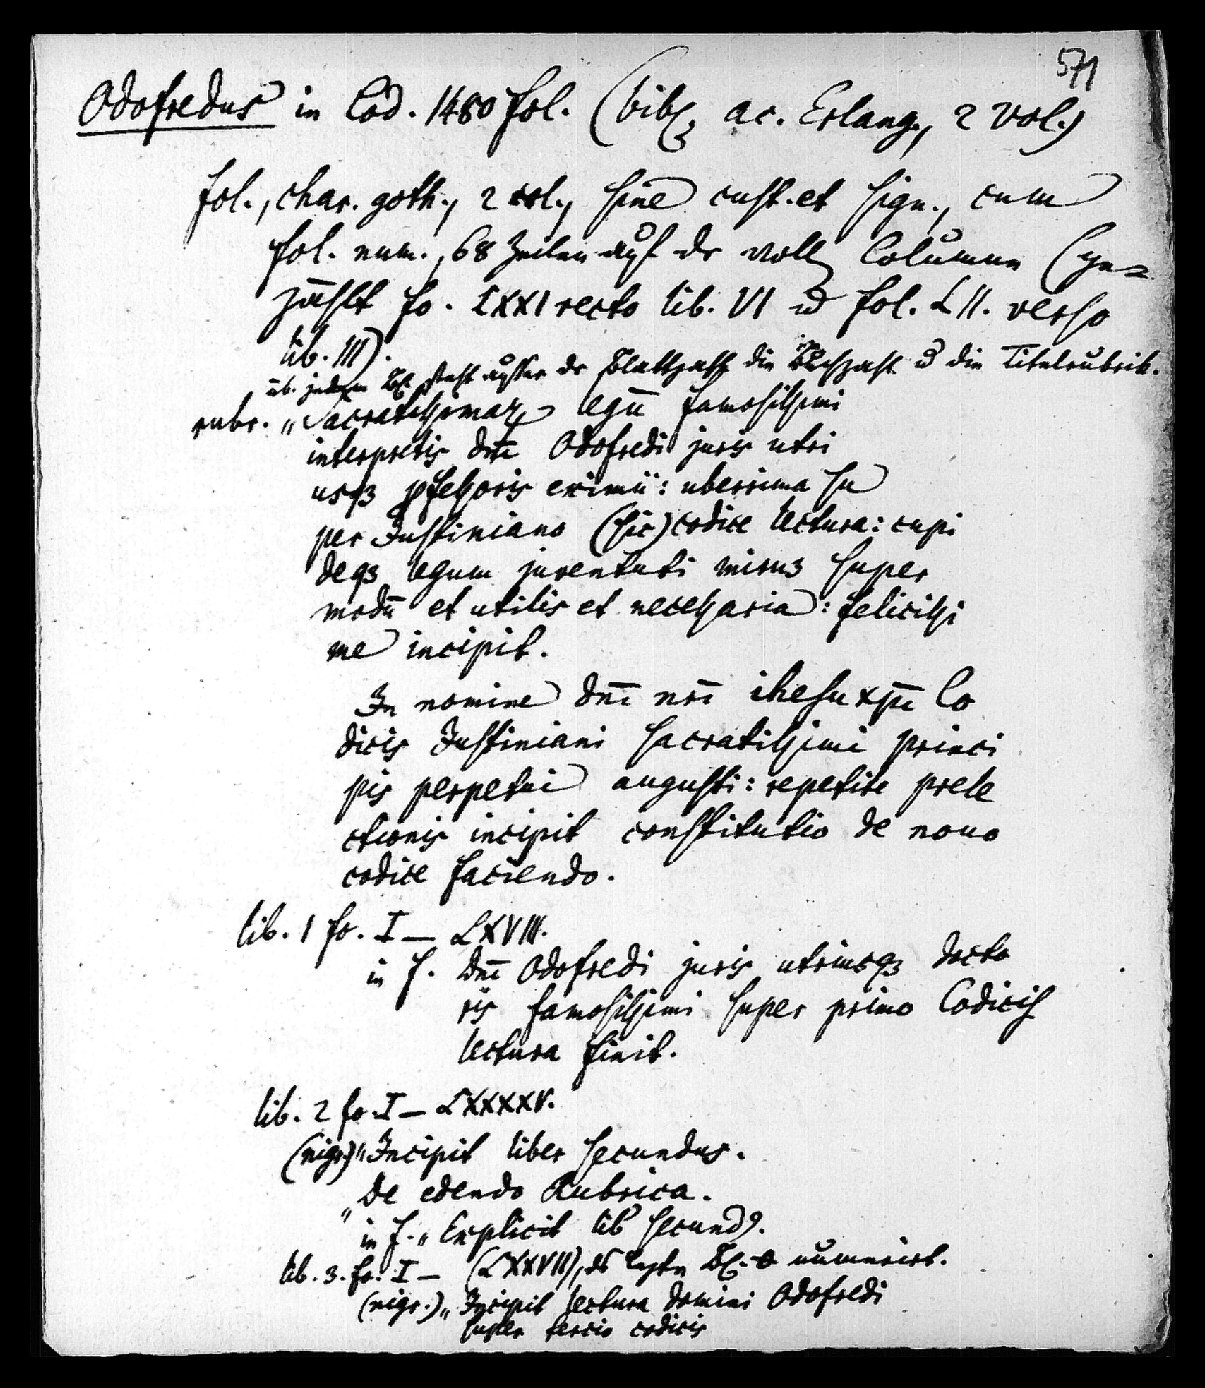 571
Odofredus in Cod. 1480 fol. (bibl. ac. Erlang., 2 vol.)
fol., char. goth., 2 col., sine cust. et sign., cum
fol. num., 68 Zeilen auf dr voll Columne (ge=
zählt fo. LXXI recto lib. VI u fol. LII. verso
lib. III).
üb. jedem Bl. steht außer dr Blattzahl die Buchzahl u die Titelrubrik.
rubr. „Sacratissimaꝝ legū famosissimi
interpretis dnī Odofredi juris utri
usqꝫ ꝓfessoris eximii: uberrima su
per Justiniano (sic) codice lectura: cupi
deqꝫ legum juventuti miruꝫ super
modū et utilis et necessaria: felicissi
me incipit.
In nomine dnī nrī ihesu xpī Co
dicis Justiniani sacratissimi princi
pis perpetui augusti: repetite prele
ctionis incipit constitutio de nouo
codice faciendo.
lib. 1 fo. I — LXVIII.
in f. Dnī Odofredi juris utriusqꝫ docto
ris famosissimi super primo Codicis
lectura finit.
lib. 2 fo. I — LXXXXV.
(nigr.) „Incipit liber secundus.
„De edendo Rubrica.
in f. „Explicit lib secundꝰ.
lib. 3. fo. I — (LXXVII), ds letzte Bl. 0 numerirt.
(nigr.) „Incipit lectura domini Odofredi
super tercio codicis